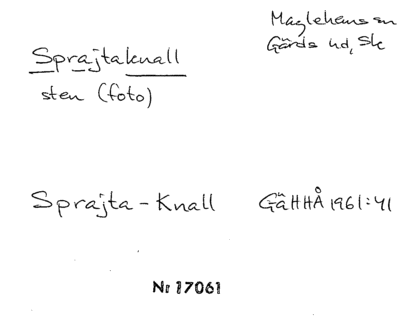 Maglehems sn
Gärds hd, Sk
Sprajtaknall
sten (foto)
Sprajta-Knall GäHHÅ 1961:41
Nr 17061